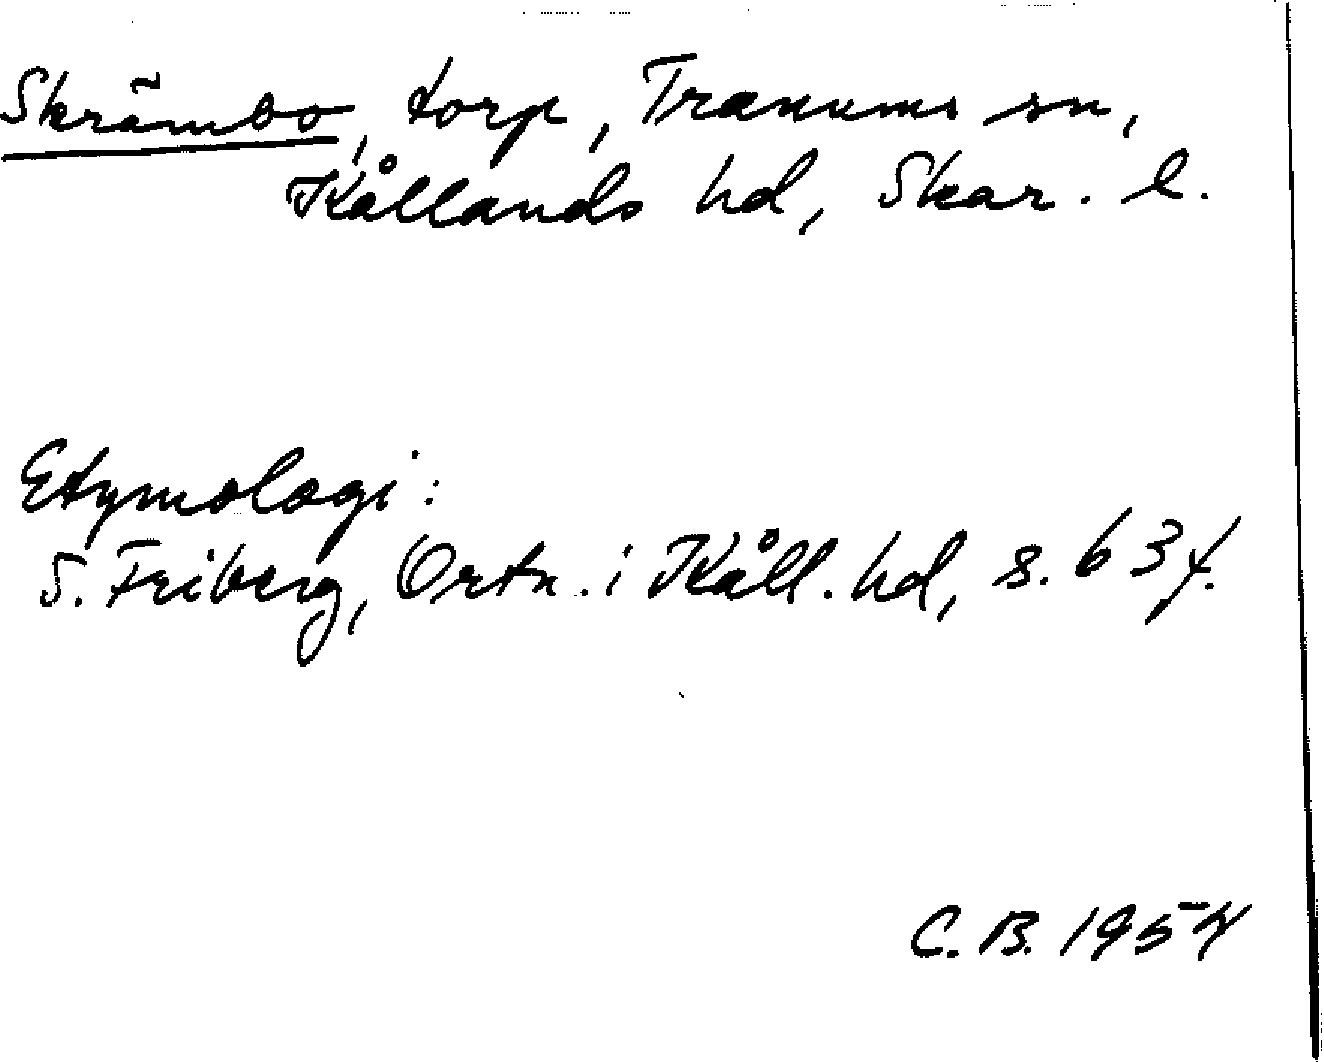 Skrämbo, torp, Tranums sn,
Kållands hd, Skar. l.
Etymologi:
S. Friberg, Ortn. i Kåll. hd, s. 63 f.
C. B. 1954